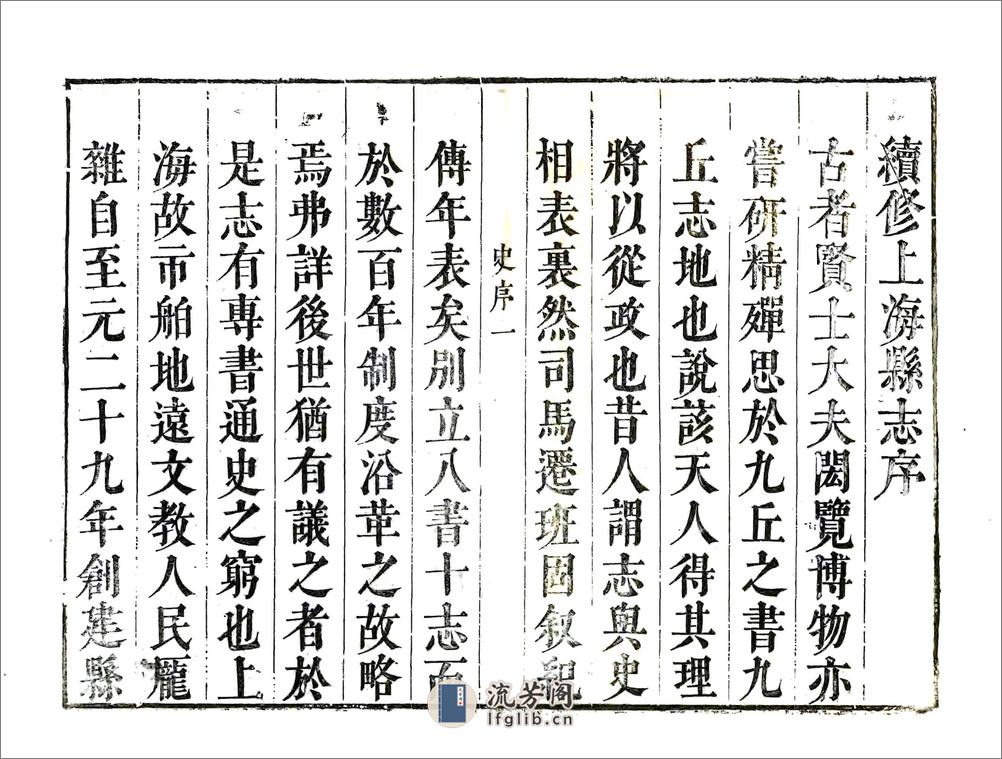 續修上海縣志序
古者賢士大夫閎覽博物亦
嘗硏精殫思於九丘之書九
丘志地也說該天人得其理
將以從政也昔人謂志與史
相表裏然司馬遷班固叙紀
史序一
傳年表矣別立八書十志而
於數百年制度沿革之故略
焉弗詳後世猶有議之者於
是志有專書通史之窮也上
海故市舶地遠文教人民龐
雜自至元二十九年創建縣
流芳阁
lfglib.cn